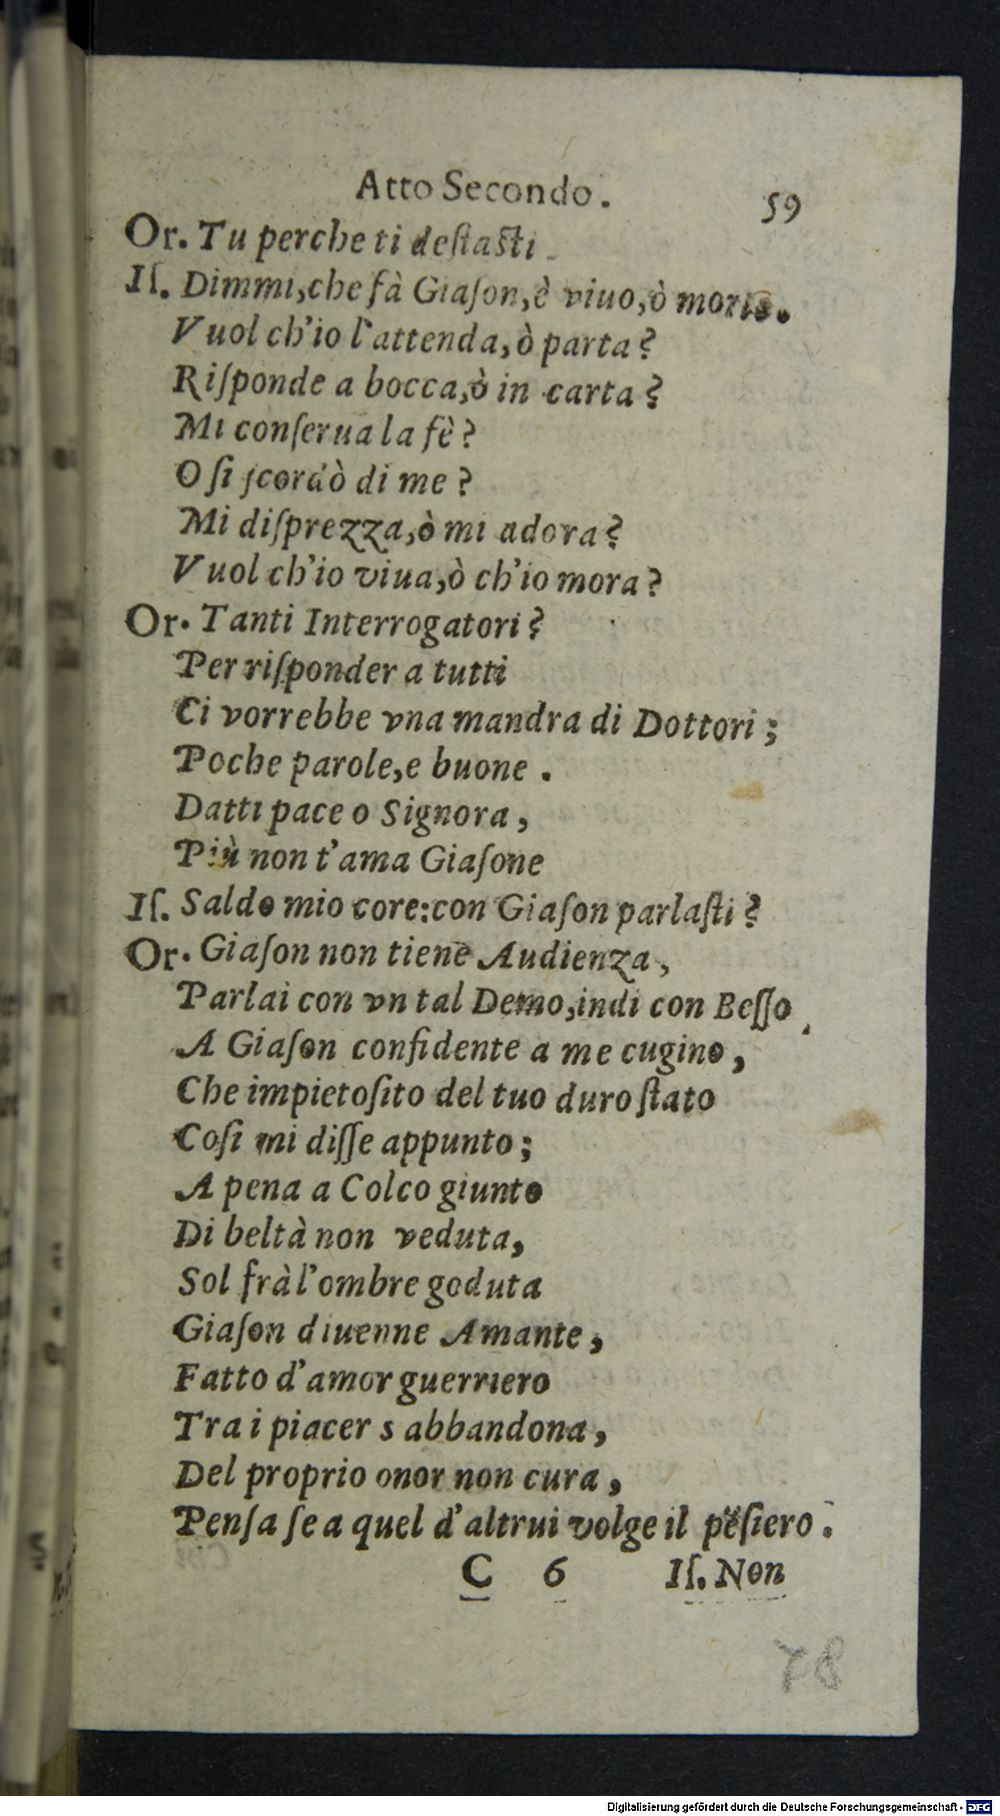 Atto Secondo. 59
Or. Tu perche ti deſtaſti.
Iſ. Dimmi,che fà Giaſon,è viuo,ò morto.
Vuol ch'io l'attenda,ò parta?
Riſponde a bocca,ò in carta?
Mi conſerua la fè?
O ſi ſcordò di me?
Mi diſprezza,ò mi adora?
Vuol ch'io viua,ò ch'io mora?
Or. Tanti Interrogatori?
Per riſponder a tutti
Ci vorrebbe vna mandra di Dottori;
Poche parole,e buone.
Datti pace o Signora,
Più non t'ama Giaſone
Iſ. Saldo mio core:con Giaſon parlaſti?
Or. Giaſon non tiene Audienza,
Parlai con vn tal Demo,indi con Beſſo,
A Giaſon confidente a me cugino,
Che impietoſito del tuo duro ſtato
Coſi mi diſſe appunto;
A pena a Colco giunto
Di beltà non veduta,
Sol frà l'ombre goduta
Giaſon diuenne Amante,
Fatto d'amor guerriero
Tra i piacer s abbandona,
Del proprio onor non cura,
Penſa ſe a quel d'altrui volge il pẽſiero.
C 6 Iſ. Non
78
Digitalisierung gefördert durch die Deutsche Forschungsgemeinschaft - DFG